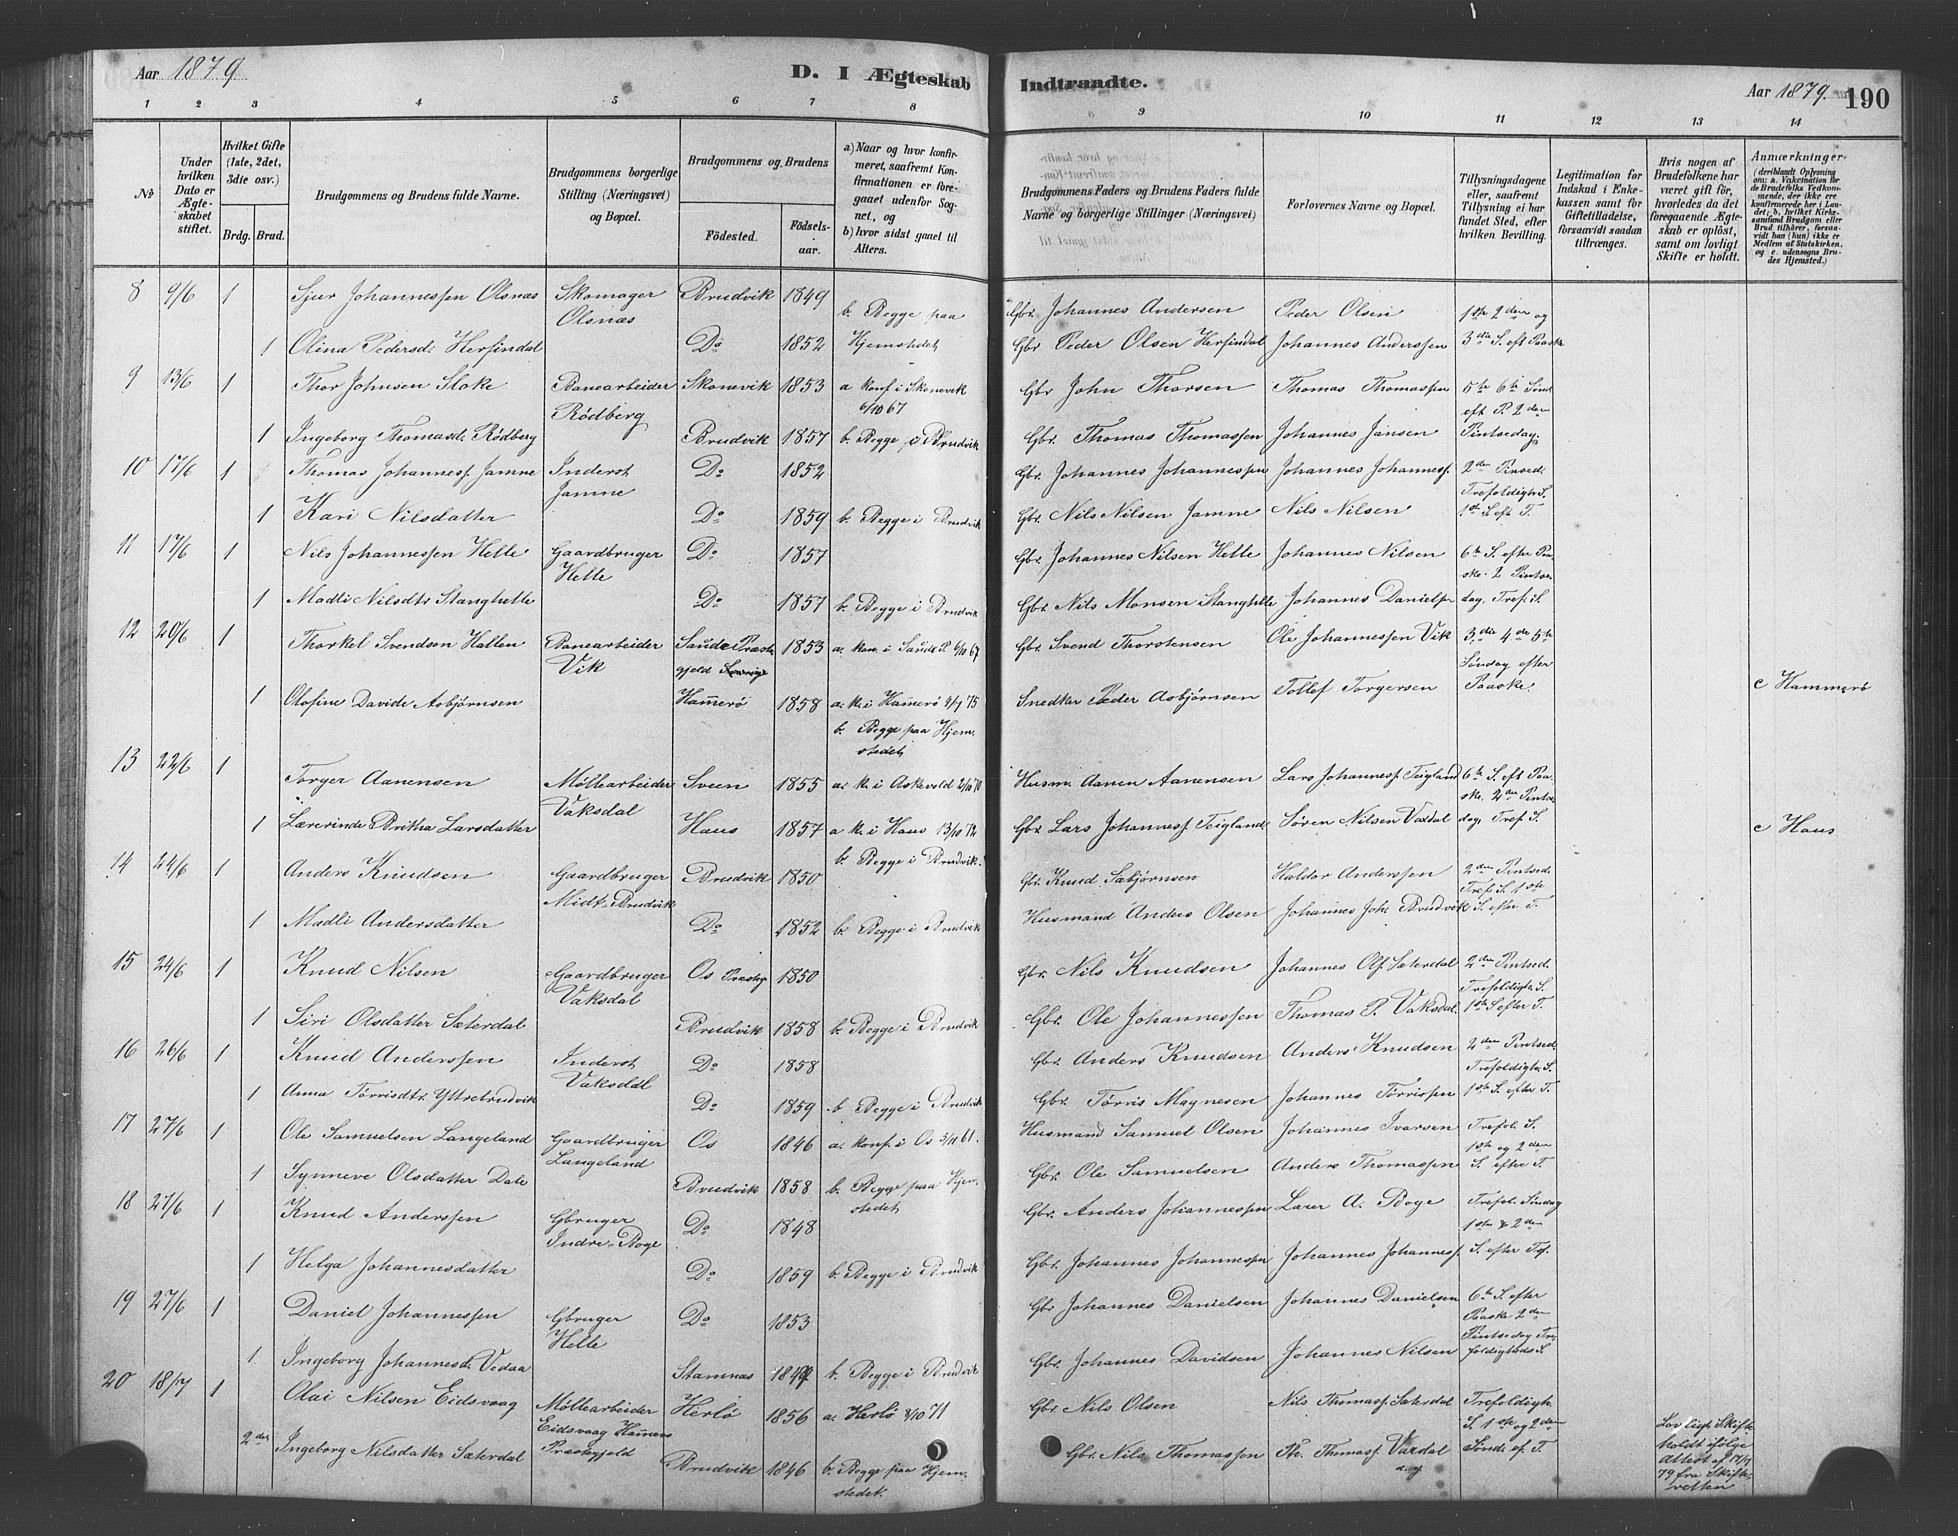 Aar 1879
D. I Ægteskab
Indtraadte.
Aar 1879.
190
1 2 3 4 5 6 7 8
9 10 11 12 13 14
№
Under hvilken Dato er Ægteskabet stiftet.
Hvilket Gifte (1ste, 2det, 3die osv.)
Brdg. Brud.
Brudgommens og Brudens fulde Navne.
Brudgommens borgerlige Stilling (Næringsvei) og Bopæl.
Brudgommens og Brudens
Fødested.
Fødselsaar.
a) Naar og hvor konfirmeret, saafremt Konfirmationen er foregaaet udenfor Sognet, og
b) hvor sidst gaaet til Alters.
Brudgommens Faders og Brudens Faders fulde Navne og borgerlige Stillinger (Næringsvei)
Forlovernes Navne og Bopæl.
Tillysningsdagene eller, saafremt Tillysning ei har fundet Sted, efter hvilken Bevilling.
Legitimation for Indskud i Enkekassen samt for Giftetilladelse, forsaavidt saadan tiltrænges.
Hvis nogen af Brudefolkene har været gift før, hvorledes da det foregaaende Ægteskab er opløst, samt om lovligt Skifte er holdt.
Anmærkninger (deriblandt Oplysning om: a. Vakcination for de Brudefolks Vedkommende, der ikke ere konfirmerede her i Landet; b. hvilket Kirkesamfund Brudgom eller Brud tilhører, forsaavidt han (hun) ikke er Medlem af Statskirken, og c. udensogns Brudes Hjemsted.)
8 9/6 1 Sjur Johannessen Olsnæs Skomager Olsnæs Brudvik 1849 b. Begge paa Hjemstedet Gbr. Johannes Andersen Peder Olsen 1ste 2den og
1 Olina Pedersd. Herfindal Do 1852 Gbr Peder Olsen Herfindal Johannes Anderssen 3die S. eft Paaske
9 13/6 1 Thor Johnsen Stoke Banearbeider Rødberg Skonevik 1853 a konf. i Skonevik 6/10 67 Gbr John Thorsen Thomas Thomassen 5te 6te Sønd eft P. 2den
1 Ingeborg Thomasd. Rødberg Brudvik 1857 b. Begge i Brudvik Gbr. Thomas Thomassen Johannes Jansen Pintsedag.
10 17/6 1 Thomas Johanness. Jamne Inderst Jamne Do 1852 Gbr. Johannes Johannessen Johannes Johanness. 2den Pinsed. Trefoldigh. S.
1 Kari Nilsdatter Do 1859 b. Begge i Brudvik Gbr. Nils Nilsen Jamne Nils Nilsen 1ste S. ef. T.
11 17/6 1 Nils Johannessen Helle Gaardbruger Helle Do 1857 Gbr. Johannes Nilsen Helle Johannes Nilsen 6te S. efter Paaske. 2 Pintse
1 Madli Nilsdtr Stanghelle Do 1857 b. Begge i Brudvik Gbr. Nils Monsen Stanghelle Johannes Danielsen dag, Tref. S.
12 20/6 1 Thorkel Svendsen Hallen Banearbeider Vik Saude Præstegjeld 1853 a. kon. i Saude P. 6/10 67 Gbr. Svend Thorstensen Ole Johannessen Vik 3die 4de 5te Søndag efter
1 Olofine Davide Asbjørnsen Hamerø 1858 a. k. i Hamerø 4/7 75 b. Begge paa Hjemstedet Snedker Peder Asbjørnsen Tollef Torgersen Paaske. c Hammerø
13 22/6 1 Torger Aanensen Møllearbeider Vaksdal Sveen 1855 a. k. i Askevold 2/10 70 Husm. Aanen Aanensen Lars Johanness. Teigland 6te S. eft Paaske. 2den Pintse
1 Lærerinde Britha Larsdatter Haus 1857 a k. i Haus 13/10 72 b. Begge i Brudvik. Gbr. Lars Johanness. Teigland. Søren Nilsen Vaxdal dag, Tref S. c Haus
14 24/6 1 Anders Knudsen Gaardbruger Midt-Brudvik Brudvik 1850 Gbr. Knud Sæbjørnsen Haldor Anderssen 2den Pintsed. Tref. S. 1ste
1 Madli Andersdatter Do 1852 b. Begge i Brudvik Husmand Anders Olsen Johannes Joh. Brudvik S. efter T.
15 24/6 1 Knud Nilsen Gaardbruger Vaksdal Os Præstg 1850 Gbr. Nils Knudsen Johannes Ols. Sæterdal 2den Pintsed. Trefoldigh. S.
1 Siri Olsdatter Sæterdal Brudvik 1858 b. Begge i Brudvik Gbr. Ole Johannessen Thomas P. Vaksdal 1ste S efter T.
16 26/6 1 Knud Anderssen Inderst Vaksdal Do 1858 Gbr. Anders Knudsen Anders Knudsen 2den Pintsed Trefoldigh. S.
1 Anna Tørrisdtr Yttrebrudvik Do 1859 b Begge i Brudvik Gbr. Tørris Magnesen Johannes Tørrissen 1ste S. efter T.
17 27/6 1 Ole Samuelsen Langeland Gaardbruger Langeland Os 1846 a. konf. i Os 5/11 61. Husmand Samuel Olsen Johannes Ivarsen Trefol. S. 1ste og 2den
1 Synneve Olsdatter Dale Brudvik 1858 b. Begge paa Hjemstedet Gbr. Ole Samuelsen Anders Thomassen S. efter T.
18 27/6 1 Knud Anderssen Gbruger Indre-Boge Do 1848 Gbr. Anders Johannessen Larer A. Boge Trefol. Søndag 1ste & 2den
1 Helga Johannesdatter Do 1859 b. Begge i Brudvik Gbr. Johannes Johannessen Johannes Johanness. S. efter Tef.
19 27/6 1 Daniel Johannessen Gbruger Helle Do 1853 Gbr Johannes Danielsen Johannes Danielsen 6te S. efter Paaske 2den Pintsedag Tre
1. Ingeborg Johannesd. Vedaa Stamnæs b. Begge i Brudvik Gbr. Johannes Davidsen Johannes Nilsen foldigheds S.
20 18/7 1 Olai Nilsen Eidsvaag Møllearbeider Eidsvaag Hamers Præstegjeld Herlø 1856 a. Herlø 8/10 71 Gbr Nils Olsen Nils Thomass. Sæterdal Trefoldigh. S. 1ste og 2den
2den Ingeborg Nilsdatter Sæterdal Brudvik 1846 b. Begge paa Hjemstedet. Gbr. Nils Thomassen Thomass. Vaxdal Sønd. ef. T Lovligt Skifte holdt ifølge Attest af 17/7 79 fra Skifteretten